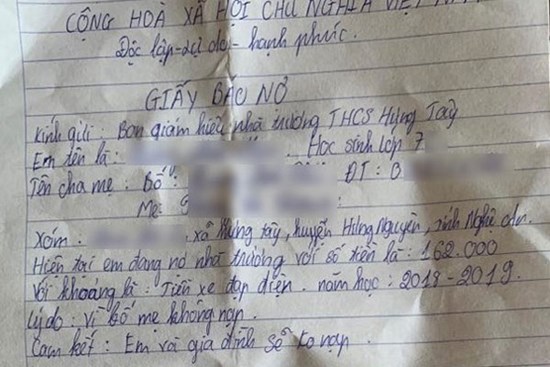 CỘNG HOÀ XÃ HỘI CHỦ NGHĨA VIỆT NAM
Độc lập-tự do-hạnh phúc.
GIẤY BÁO NỢ
Kính gửi : Ban giám hiệu nhà trường THCS Hưng Tây
Em tên là : Học sinh lớp 7
Tên cha mẹ : Bố : ĐT : 0
Mẹ:
Xóm. xã Hưng tây, huyện Hưng Nguyên, tỉnh Nghệ an.
Hiện tại em đang nợ nhà trường với số tiền là : 162.000
Với khoảng là : Tiền xe đạp điện. năm học : 2018-2019.
Lý do : Vì bố mẹ không nạp.
Cam kết : Em và gia đình sẽ ko nạp.